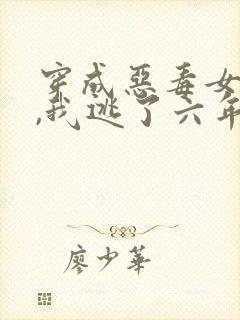 穿成惡毒女
,我逃了六年
廖少華